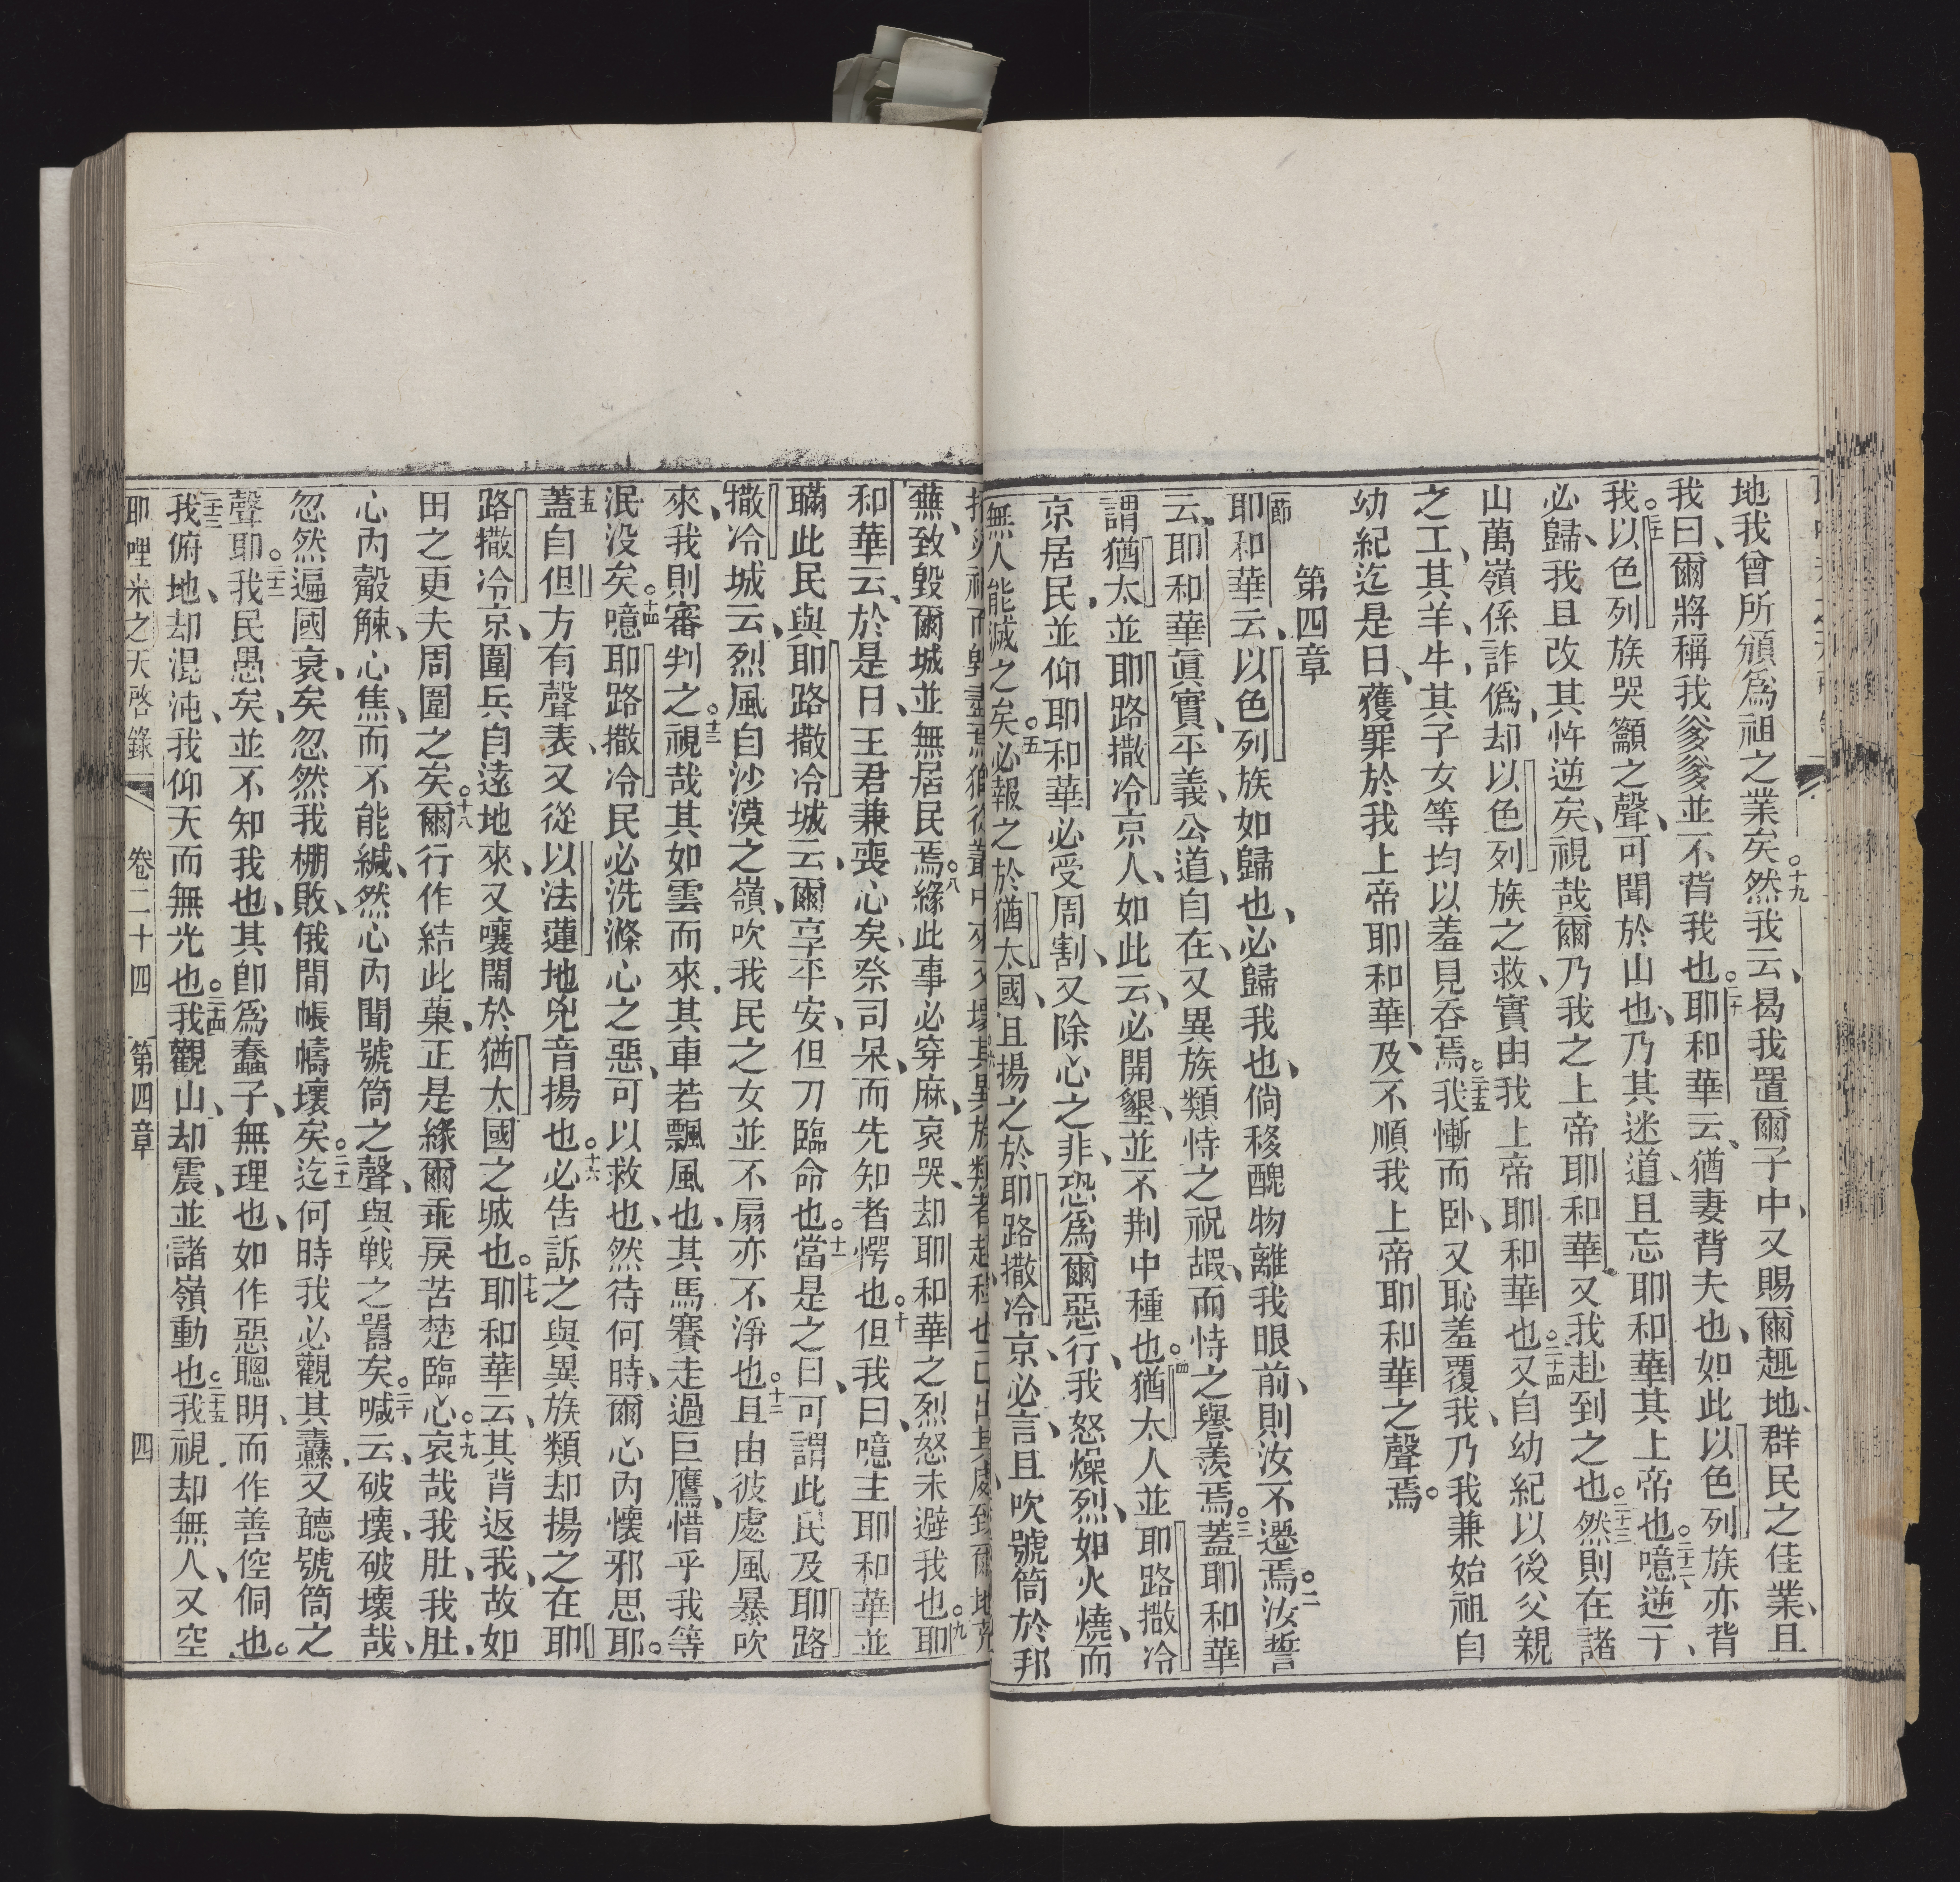 地我曾所頒爲祖之業矣○十九然我云、曷我置爾子中、又賜爾趣地、群民之佳業、且
我曰、爾將稱我爹爹並不背我也○二十耶和華云、猶妻背夫也、如此以色列族亦背
我○二一以色列族哭籲之聲、可聞於山也、乃其迷道、且忘耶和華其上帝也○二十二噫逆子、
必歸、我且改其忤逆矣、視哉爾乃我之上帝耶和華、又我赴到之也○二十三然則在諸
山萬嶺係詐僞、却以色列族之救、實由我上帝耶和華也○二十四又自幼紀以後父親
之工、其羊、牛、其子女等均以羞見吞焉○二十五我慚而卧、又恥羞覆我、乃我兼始祖自
幼紀迄是日、獲罪於我上帝耶和華、及不順我上帝耶和華之聲焉。
第四章
耶和華云、以色列族如歸也、必歸我也、倘移醜物離我眼前、則汝不遷焉○二汝誓
云、耶和華眞實、平義、公道、自在、又異族類恃之祝嘏、而恃之譽羨焉○三蓋耶和華
謂猶太並耶路撒冷京人、如此云、必開墾、並不荆中種也○四猶太人並耶路撒冷
京居民、並仰耶和華必受周割、又除心之非、恐爲爾惡行、我怒燥烈、如火燒、而
無人能滅之矣○五必報之於猶太國、且揚之於耶路撒冷京、必言、且吹號筒於邦
蕪、致毀爾城並無居民焉○八緣此事必穿麻、哀哭、却耶和華之烈怒未避我也○九耶
和華云、於是日、王君兼喪心矣、祭司呆、而先知者愕也○十但我曰、噫主耶和華並
瞞此民與耶路撒冷城、云、爾享平安、但刀臨命也○十一當是之日、可謂此民及耶路
撒冷城云、烈風自沙漠之嶺、吹我民之女並不扇亦不淨也○十二且由彼處風暴吹
來、我則審判之○十三視哉其如雲而來、其車若飄風也、其馬賽走過巨鷹、惜乎我等
泯没矣○十四噫耶路撒冷民必洗滌心之惡、可以救也、然待何時、爾心內懷邪思耶。
蓋自但方有聲表、又從以法蓮地兇音揚也○十六必告訴之與異族類却揚之在耶
路撒冷京、圍兵自遠地來、又嚷鬧於猶太國之城也○十七耶和華云、其背返我、故如
田之更夫周圍之矣○十八爾行作結此菓、正是緣爾乖戾苦楚臨心○十九哀哉我肚、我肚、
心內觳觫、心焦、而不能緘、然心內聞號筒之聲、與戰之囂矣○二十喊云、破壞、破壞哉、
忽然遍國衰矣、忽然我棚敗、俄間帳幬壞矣○二十一迄何時我必觀其纛、又聽號筒之
聲耶○二十二我民愚矣、並不知我也、其卽爲蠢子、無理也、如作惡聰明、而作善倥侗也。
二十三我俯地、却混沌、我仰天而無光也○二十四我觀山、却震、並諸嶺動也○二十五我視却無人、又空
耶哩米之天啓錄　卷二十四　第四章　四